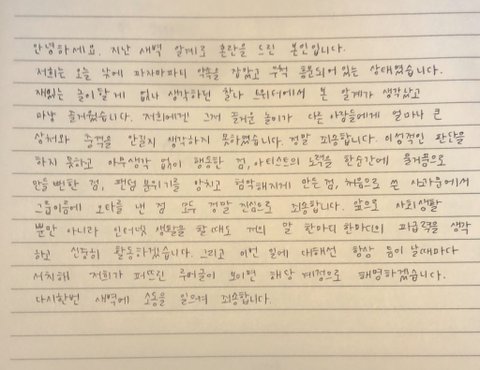 안녕하세요. 지난 새벽 알계로 혼란을 드린 본인입니다.
저희는 오늘 낮에 파자마파티 약속을 잡았고 무척 흥분되어 있는 상태였습니다.
재밌는 놀이할게 없나 생각하던 찰나 트위터에서 본 알계가 생각났고
마냥 즐거웠습니다. 저희에겐 그저 즐거운 놀이가 다른 아잠들에게 얼마나 큰
상처와 충격을 안길지 생각하지 못하였습니다. 정말 죄송합니다. 이성적인 판단을
하지 못하고 아무생각 없이 행동한 점, 아티스트의 노력을 한순간에 물거품으로
만들뻔한 점, 팬덤 분위기를 망치고 험악해지게 만든 점, 처음으로 쓴 사과문에서
그룹이름에 오타를 낸 점 모두 정말 진심으로 죄송합니다. 앞으로 사회생활
뿐만 아니라 인터넷 생활을 할 때도 저의 말 한마디 한마디의 파급력을 생각
하고 신중히 활동하겠습니다. 그리고 이번 일에 대해선 항상 틈이 날때마다
서치해 저희가 퍼뜨린 루머글이 보이면 해당 계정으로 해명하겠습니다.
다시한번 새벽에 소동을 일으켜 죄송합니다.